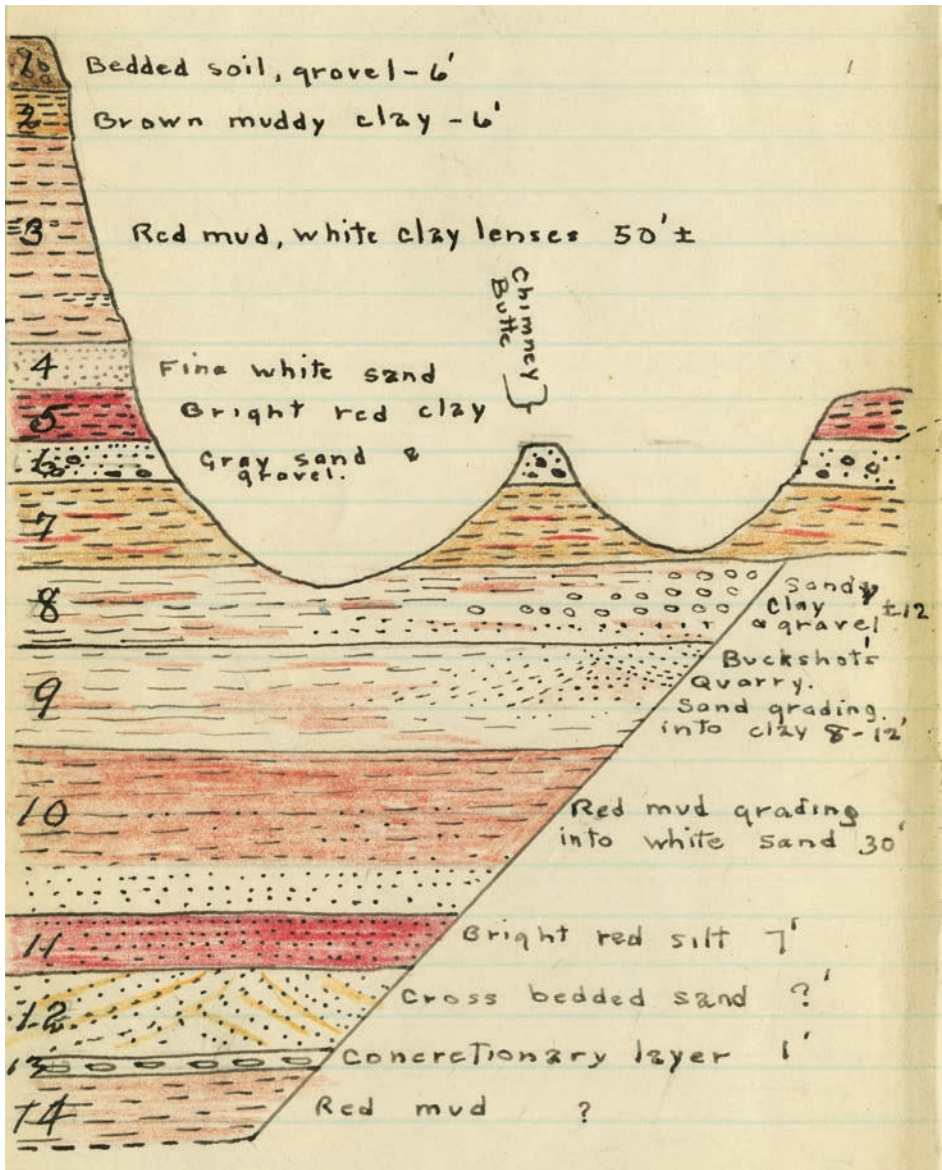 1 Bedded soil, gravel - 6'
2 Brown muddy clay - 6'
3 Red mud, white clay lenses 50' ±
Chimney
Butte
4 Fine white sand
5 Bright red clay
6 Gray sand &
gravel.
7
8 Sandy
clay ±12
& gravel
9 Buckshot's
Quarry.
Sand grading
into clay 8-12'
10 Red mud grading
into white sand 30'
11 Bright red silt 7'
12 Cross bedded sand ?'
13 Concretionary layer 1'
14 Red mud ?